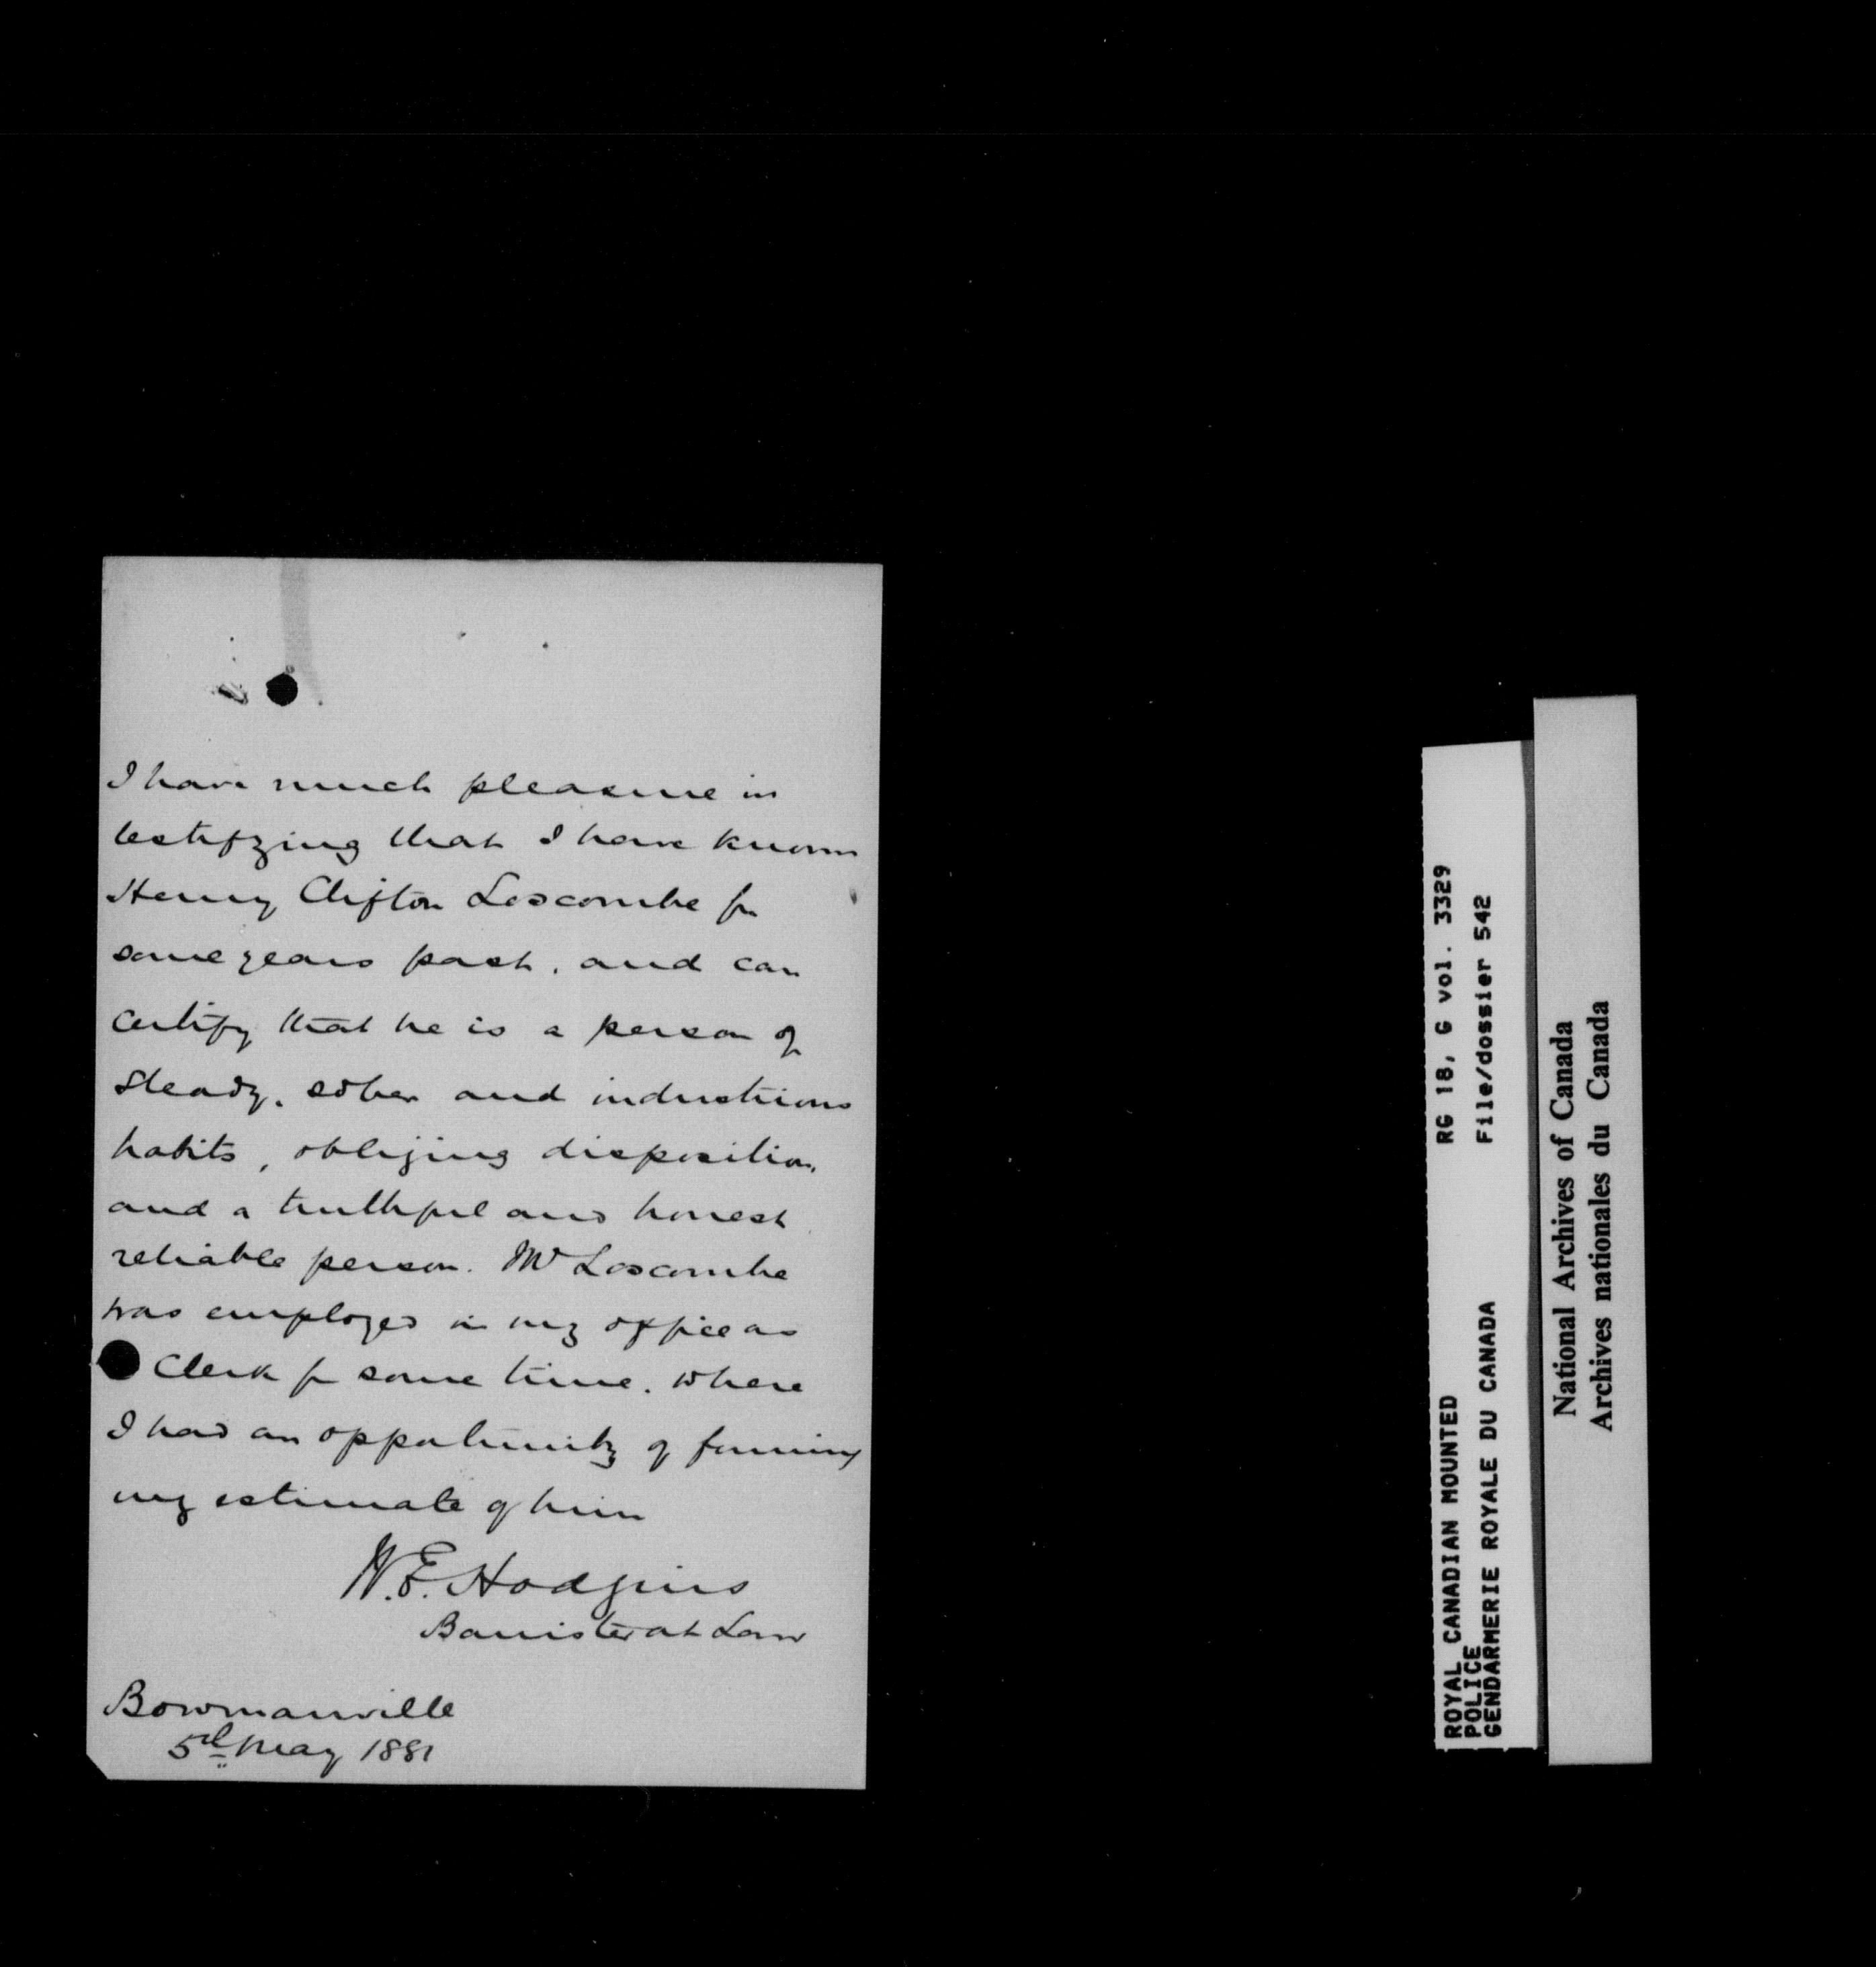 I have much pleasure in
testifying that I have known
Henry Clifton Loscombe for
some years past, and can
certify that he is a person of
steady, sober and industrious
habits, obliging disposition,
and a truthful and honest
reliable person. Mr Loscombe
was employed in my office as
Clerk for some time. where
I had an opportunity of forming
my estimate of him
W. E. Hodgins
Barrister at Law
Bowmanville
5th May 1881
ROYAL CANADIAN MOUNTED
POLICE
GENDARMERIE ROYALE DU CANADA
RG 18, G vol. 3329
File/dossier 542
National Archives of Canada
Archives nationales du Canada